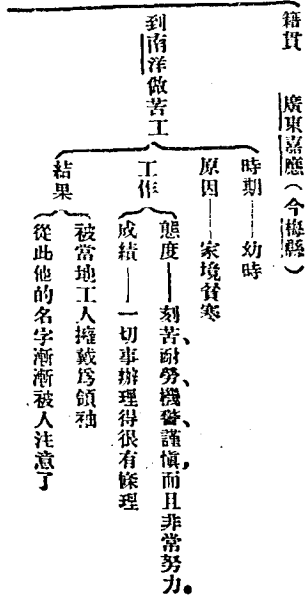 籍貫　廣東嘉應(今梅縣)
到南洋做苦工
時期——幼時
原因——家境貧寒
工作
態度——刻苦、耐勞、機警、謹愼，而且非常努力。
成績——一切事辦理得很有條理
結果
被當地工人擁戴爲領袖
從此他的名字漸漸被人注意了